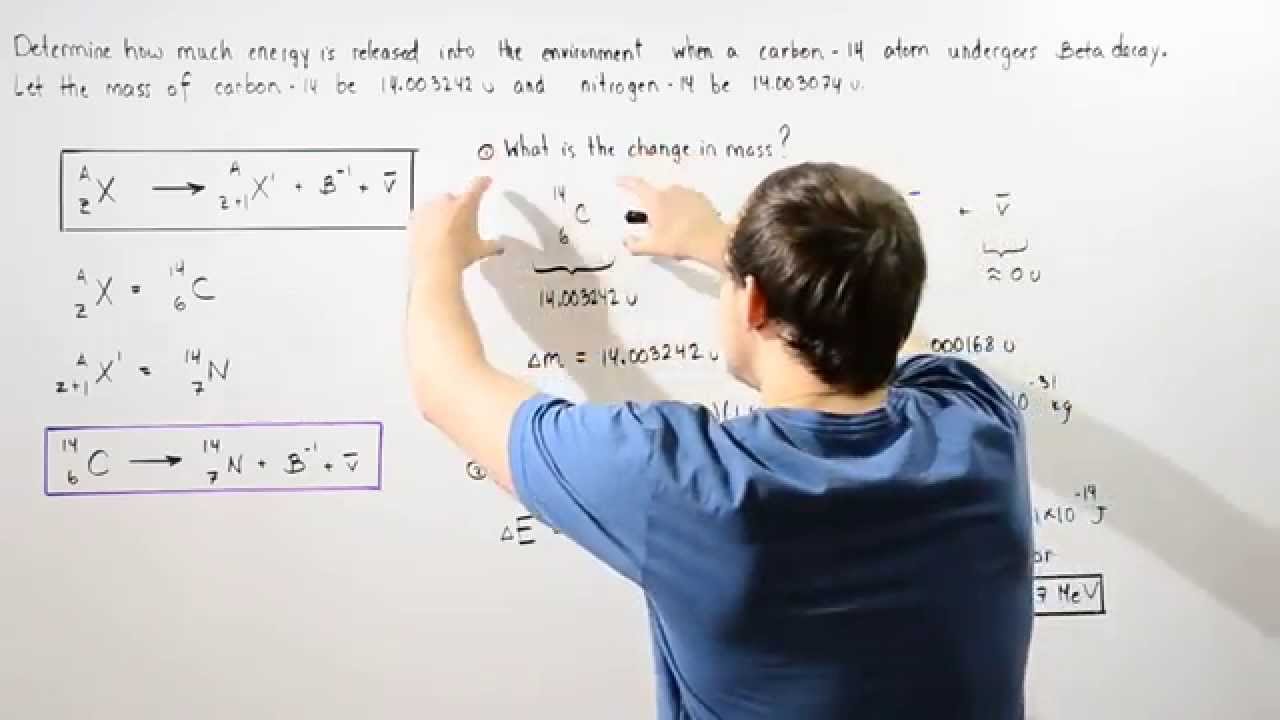 Determine how much energy is released into the environment when a carbon-14 atom undergoes Beta decay.
Let the mass of carbon-14 be 14.003242 u and nitrogen-14 be 14.003074 u.
A Z X → A Z+1 X' + B⁻¹ + v̄
A Z X = 14 6 C
A Z+1 X' = 14 7 N
14 6 C → 14 7 N + B⁻¹ + v̄
① What is the change in mass?
14 6 C - + v̄
14.003242 u ≈ 0 u
Δm = 14.003242 u 000168 u
-31 kg
②
ΔE ×10⁻¹⁴ J
or
7 MeV